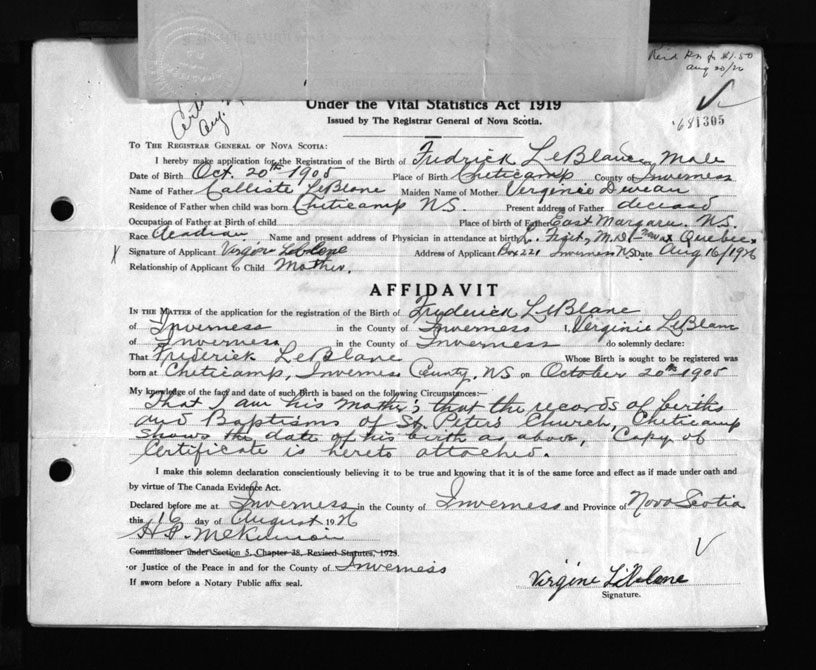 Aug 20/26
681305
Under the Vital Statistics Act 1919
Issued by The Registrar General of Nova Scotia.
TO THE REGISTRAR GENERAL OF NOVA SCOTIA:
I hereby make application for the Registration of the Birth of Fredrick LeBlanc, Male
Date of Birth Oct. 20th 1905 Place of Birth Cheticamp County of Inverness
Name of Father Calliste LeBlanc Maiden Name of Mother Verginie Deveau
Residence of Father when child was born Cheticamp NS. Present address of Father deceased
Occupation of Father at Birth of child Place of birth of Father East Margaree N.S.
Race Acadian Name and present address of Physician in attendance at birth L. M.D. now at Quebec
X Signature of Applicant Virgine Leblanc Address of Applicant Box 221 Inverness NS Date Aug 16/1926
Relationship of Applicant to Child Mother.
AFFIDAVIT
IN THE MATTER of the application for the registration of the Birth of Frederick LeBlanc
of Inverness in the County of Inverness I, Verginie LeBlanc
of Inverness in the County of Inverness do solemnly declare:
That Frederick LeBlanc Whose Birth is sought to be registered was
born at Cheticamp, Inverness County, NS on October 20th 1905
My knowledge of the fact and date of such Birth is based on the following Circumstances:—
That I am his Mother; that the records of births
and Baptisms of St. Peter's Church, Cheticamp
shows the date of his birth as above, Copy of
Certificate is hereto attached.
I make this solemn declaration conscientiously believing it to be true and knowing that it is of the same force and effect as if made under oath and
by virtue of The Canada Evidence Act.
Declared before me at Inverness in the County of Inverness and Province of Nova Scotia
this 16 day of August 1926
Commissioner under Section 5, Chapter 38, Revised Statutes, 1923.
or Justice of the Peace in and for the County of Inverness
If sworn before a Notary Public affix seal.
Virgine LeBlanc
Signature.